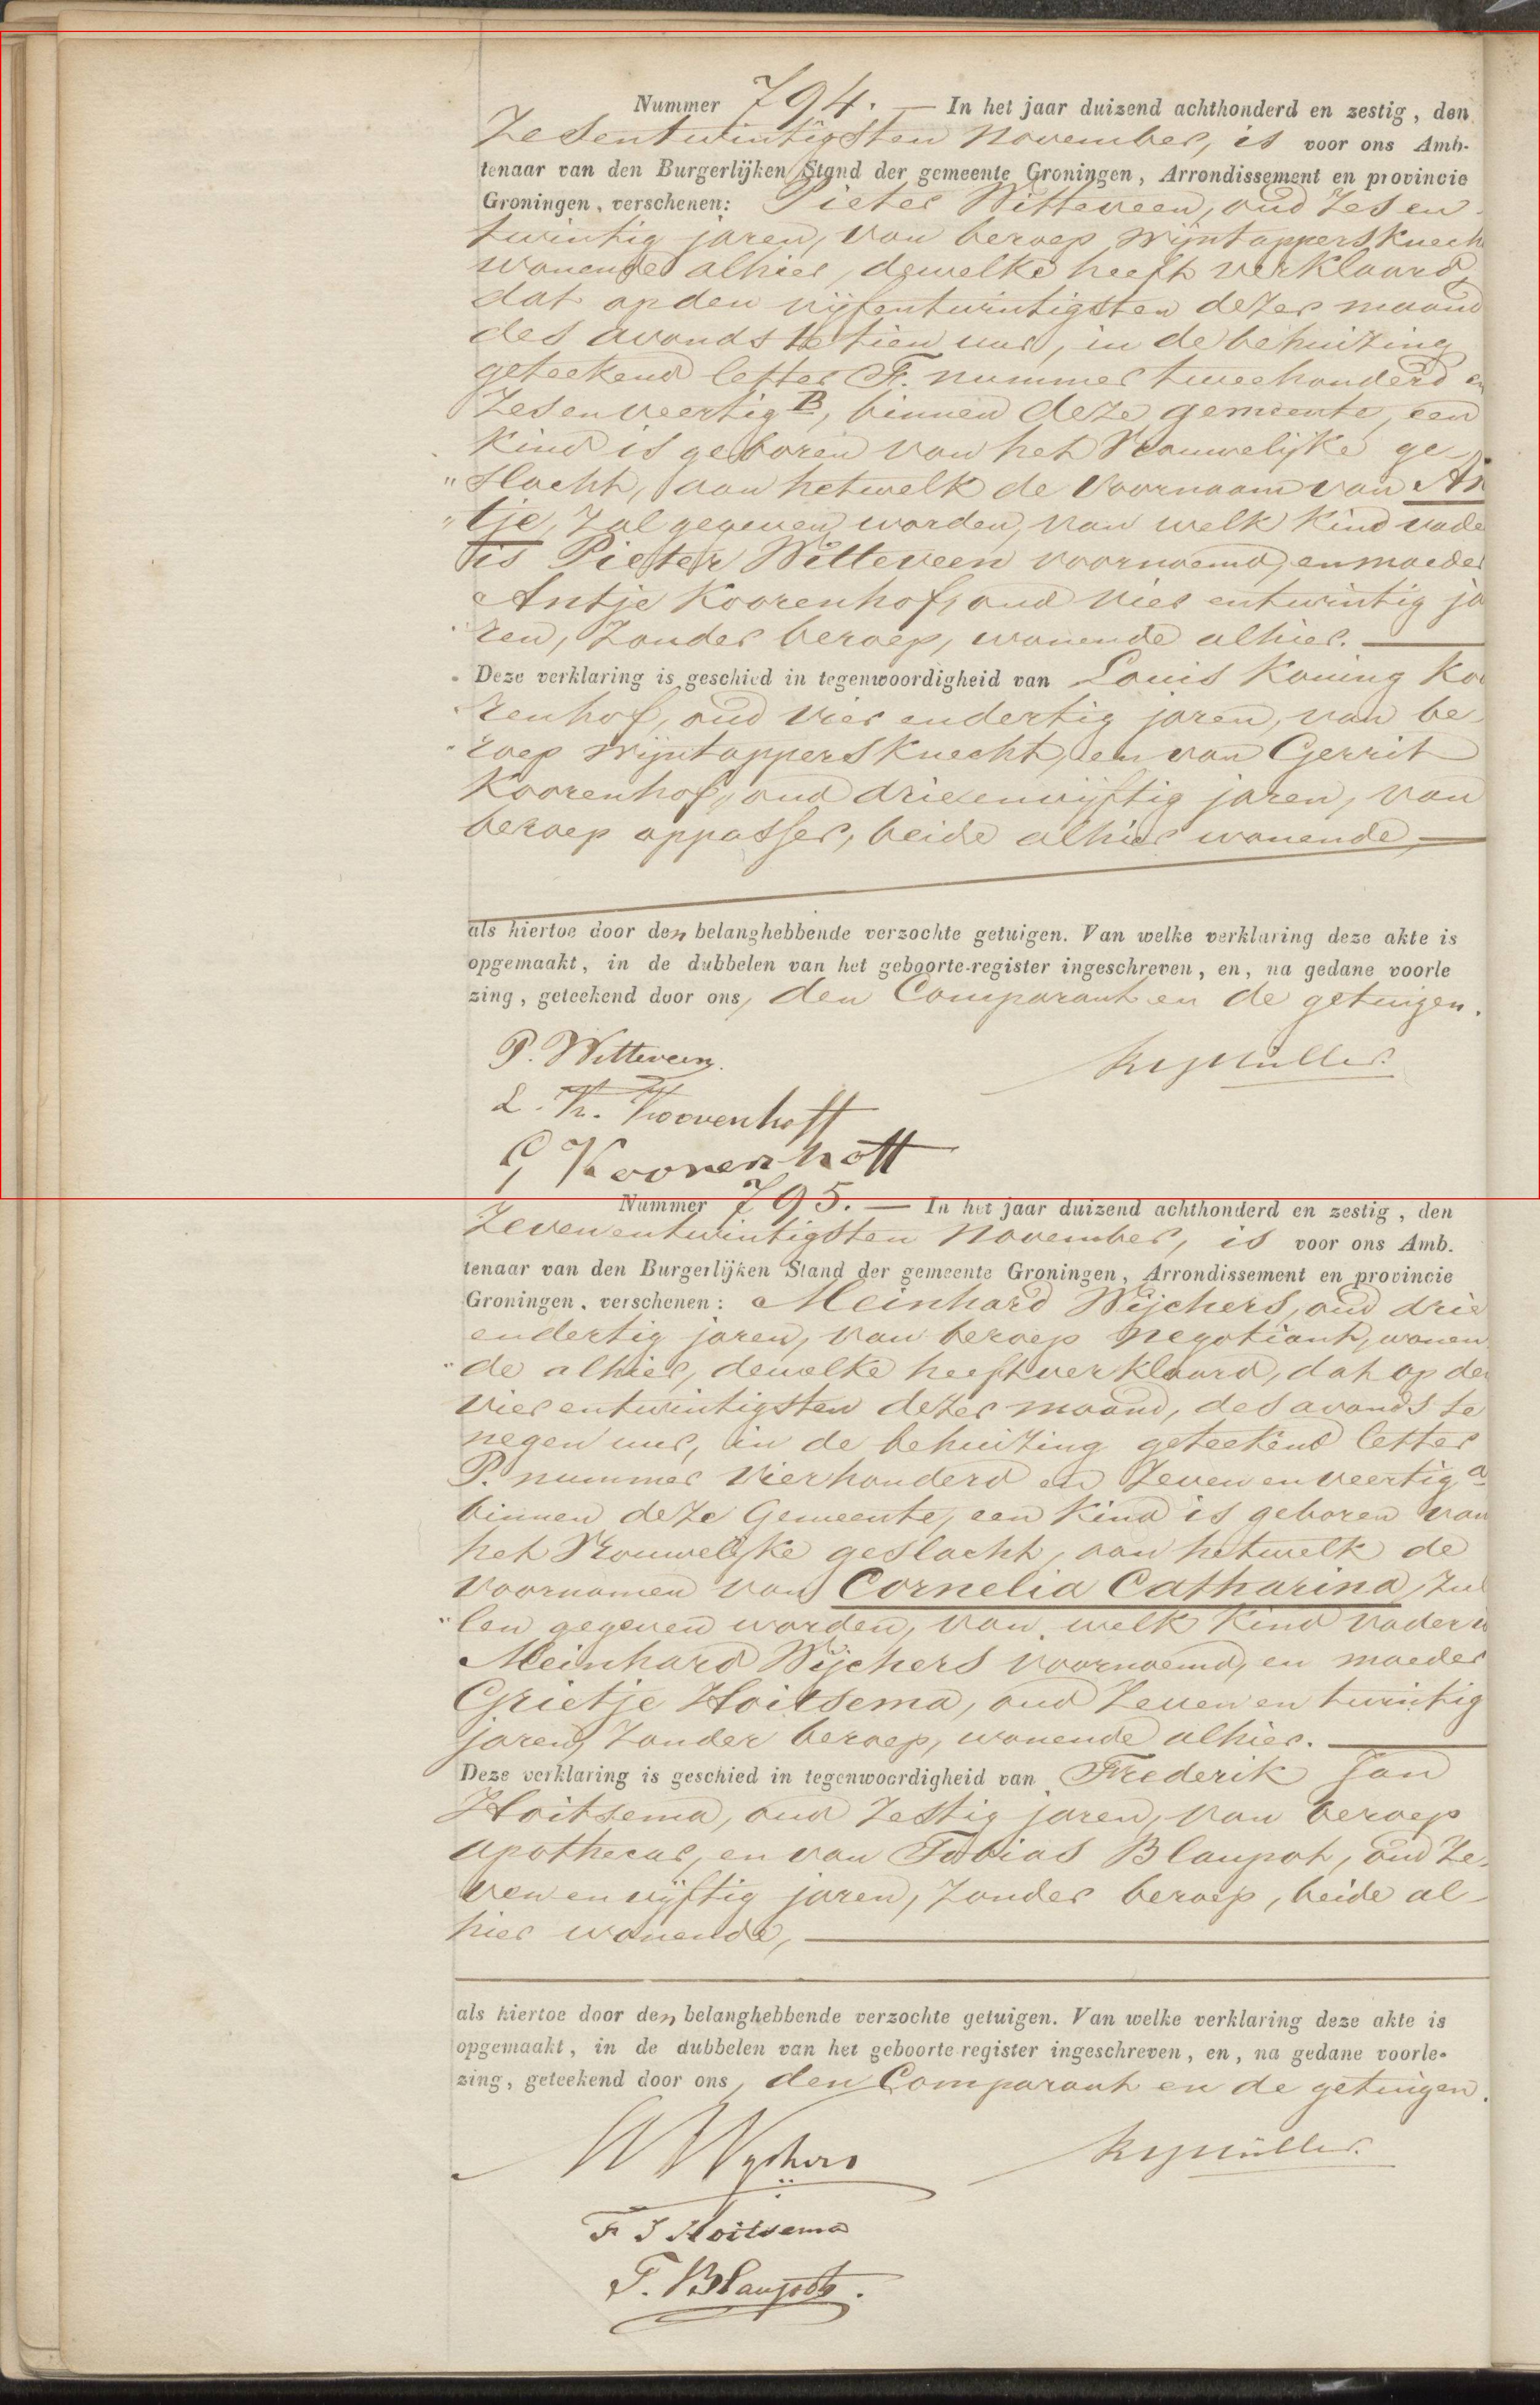 Nummer 794. — In het jaar duizend achthonderd en zestig, den
Zesentwintigsten November, is voor ons Amb-
tenaar van den Burgerlijken Stand der gemeente Groningen, Arrondissement en provincie
Groningen, verschenen: Pieter Witteveen, oud zes en
twintig jaren, van beroep wijntappersknech
wonende alhier, dewelke heeft verklaard,
dat op den vijfentwintigsten dezer maand
des avonds te tien uur, in de behuizing
geteekend letter F. nummer tweehonderd en
zesenveertig B, binnen deze gemeente, een
kind is geboren van het Vrouwelijke ge-
"slacht, aan hetwelk de Voornaam van An
"tje, zal gegeven worden, van welk kind vade
is Pieter Witteveen voornoemd, en moeder
Antje Koorenhof, oud vier entwintig ja
ren, zonder beroep, wonende alhier. —
Deze verklaring is geschied in tegenwoordigheid van Louis Koning Koo
renhof, oud vier endertig jaren, van be-
roep wijntappersknecht, en van Gerrit
Koorenhof, oud drieenvijftig jaren, van
beroep oppasser, beide alhier wonende, —
als hiertoe door den belanghebbende verzochte getuigen. Van welke verklaring deze akte is
opgemaakt, in de dubbelen van het geboorte-register ingeschreven, en, na gedane voorle
zing, geteekend door ons, den Comparant en de getuigen.
P. Witteveen. Müller.
L. K. Koorenhoff
G Koorenhoff
Nummer 795. — In het jaar duizend achthonderd en zestig, den
Zevenentwintigsten November, is voor ons Amb.
tenaar van den Burgerlijken Stand der gemeente Groningen, Arrondissement en provincie
Groningen, verschenen: Meinhard Wijchers, oud drie
endertig jaren, van beroep negotiant, wonen
"de alhier, dewelke heeft verklaard, dat op den
vier entwintigsten dezer maand, des avonds te
negen uur, in de behuizing geteekend letter
P. nummer Vierhonderd en Zeven en veertig a
binnen deze Gemeente, een kind is geboren van
het Vrouwelijke geslacht, aan hetwelk de
voornamen van Cornelia Catharina, zul
"len gegeven worden, van welk kind vader is
Meinhard Wijchers voornoemd, en moeder
Grietje Hoitsema, oud Zeven en twintig
jaren, zonder beroep, wonende alhier. —
Deze verklaring is geschied in tegenwoordigheid van Frederik Jan
Hoitsema, oud zestig jaren, van beroep
apothecar, en van Tobias Blaupot, oud ze-
ven en vijftig jaren, zonder beroep, beide al-
hier wonende, —
als hiertoe door den belanghebbende verzochte getuigen. Van welke verklaring deze akte is
opgemaakt, in de dubbelen van het geboorte-register ingeschreven, en, na gedane voorle-
zing, geteekend door ons, den Comparant en de getuigen.
M Wychers Müller.
F J Hoitsema
T. Blaupot.